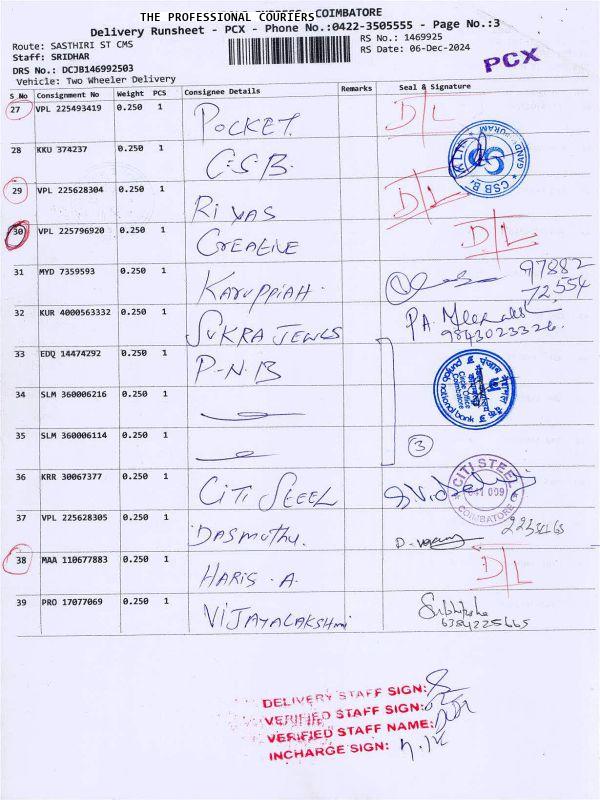 THE PROFESSIONAL COURIERS
COIMBATORE
Delivery Runsheet - PCX - Phone No.:0422-3505555 - Page No.:3
Route: SASTHIRI ST CMS
RS No.: 1469925
Staff: SRIDHAR
RS Date: 06-Dec-2024
PCX
DRS No.: DCJB146992503
Vehicle: Two Wheeler Delivery
S No Consignment No Weight PCS Consignee Details Remarks Seal & Signature
27 VPL 225493419 0.250 1 POCKET D/L
28 KKU 374237 0.250 1 C.S.B.
29 VPL 225628304 0.250 1 RiYAS D/L
30 VPL 225796920 0.250 1 CREATIVE D/L
31 MYD 7359593 0.250 1 KARUPPIAH. 97882
72554
32 KUR 4000563332 0.250 1 SUKRA JEWLS P.A.
9843023326.
33 EDQ 14474292 0.250 1 P-N-B
34 SLM 360006216 0.250 1
35 SLM 360006114 0.250 1 3
36 KRR 30067377 0.250 1 CiTi STEEL CITI STEEL
COIMBATORE
37 VPL 225628305 0.250 1 DASMUTHU.
38 MAA 110677883 0.250 1 HARIS . A. D/L
39 PRO 17077069 0.250 1 VIJAYALAKSHmi
6384225665
DELIVERY STAFF SIGN:
VERIFIED STAFF SIGN:
VERIFIED STAFF NAME:
INCHARGE SIGN: